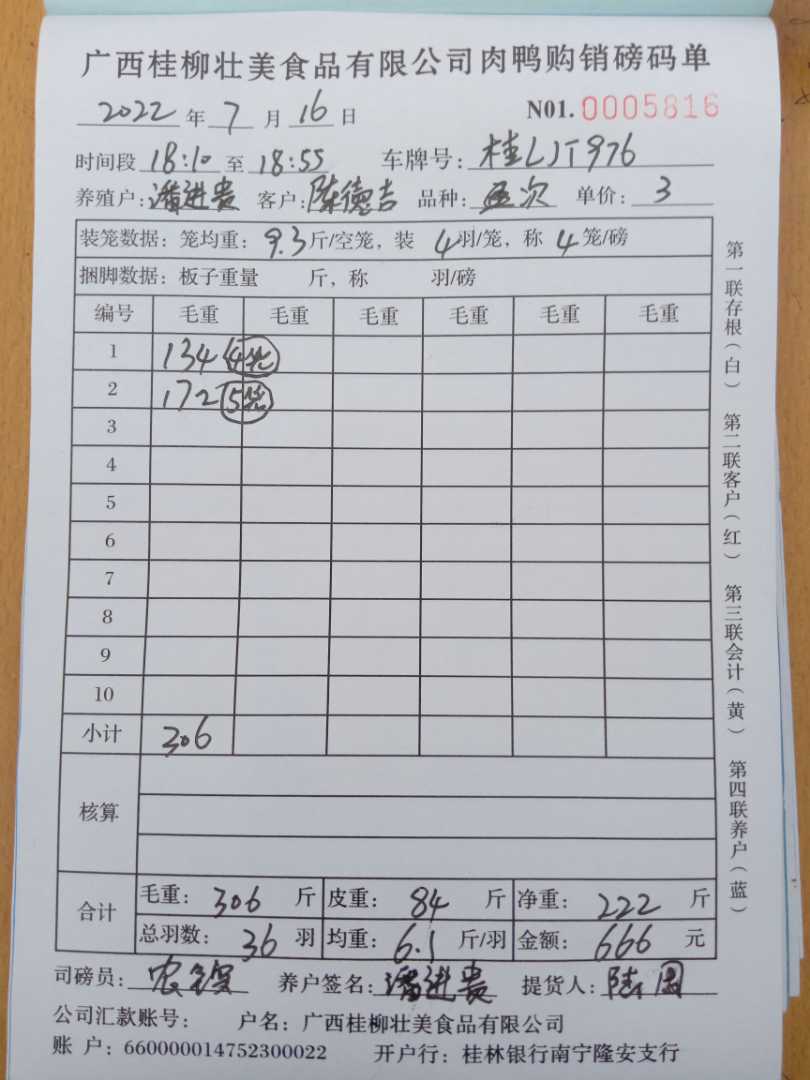 广西桂柳壮美食品有限公司肉鸭购销磅码单
2022 年 7 月 16 日 N01. 0005816
时间段 18:10 至 18:55 车牌号: 桂LJT976
养殖户: 潘进贵 客户: 陈德吉 品种: 次 单价: 3
装笼数据: 笼均重: 9.3 斤/空笼, 装 4 羽/笼, 称 4 笼/磅
捆脚数据: 板子重量 斤, 称 羽/磅
编号 毛重 毛重 毛重 毛重 毛重 毛重
1 134 4笼
2 172 5笼
3
4
5
6
7
8
9
10
小计 306
核算
合计 毛重: 306 斤 皮重: 84 斤 净重: 222 斤
总羽数: 36 羽 均重: 6.1 斤/羽 金额: 666 元
司磅员: 农 养户签名: 潘进贵 提货人: 陆
公司汇款账号: 户名: 广西桂柳壮美食品有限公司
账 户: 660000014752300022 开户行: 桂林银行南宁隆安支行
第一联存根(白) 第二联客户(红) 第三联会计(黄) 第四联养户(蓝)